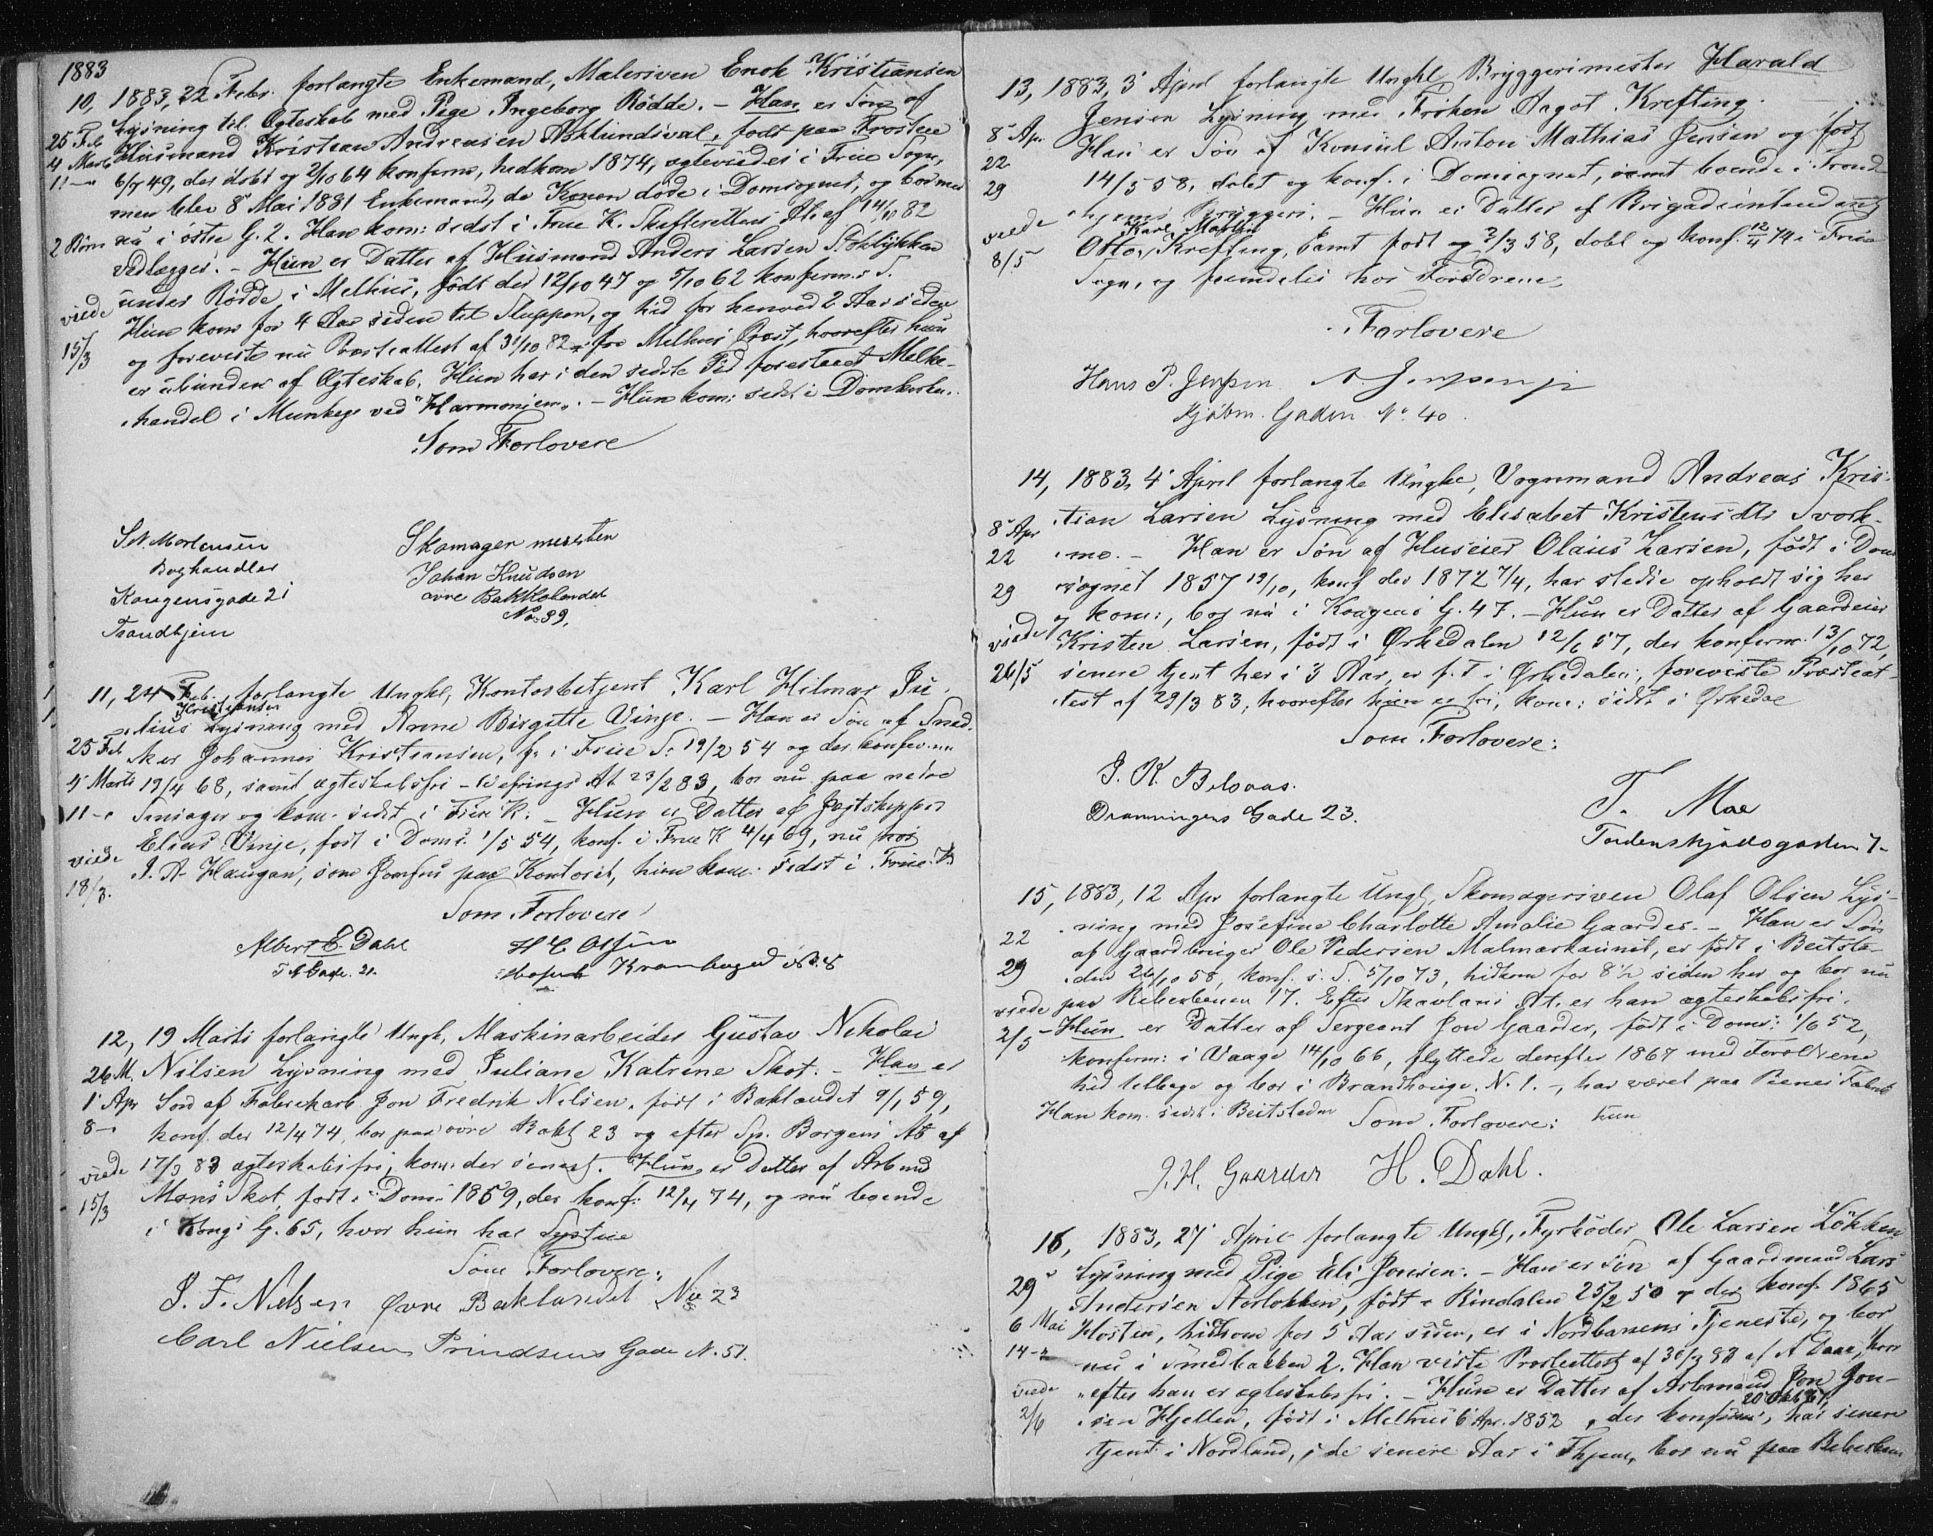 1883
10, 1883, 22 Febr. forlangte Enkemand, Malersven Enok Kristiansen
Lysning til Ægteskab med Pige Ingeborg Rödde. – Han er Søn af
25 Feb
4 Marts
11 –
Husmand Kristian Andreasen Asklundsval, født paa Frosten
6/7 49, der döbt og 2/10 64 konferm, hidkom 1874, ægteviedes i Frue Sogn,
men blev 8 Mai 1881 Enkemand, da Konen döde i Domsognet, og bor med
2 Börn nu i östre G. 2. Han kom: sidst i Frue K. Skifterettens At. af 14/10 82
vedlægges. – Hun er Datter af Husmand Anders Larsen
under Rödde i Melhus, født der 12/10 47 og 5/10 62 konferm. s. S.
viede
15/3
Hun kom for 4 Aar siden til Sluppen, og hid for henved 2 Aar siden
og foreviste nu Præsteattest af 31/10 82 fra Melhus Præst, hvorefter hun
er ubunden af Ægteskab. Hun har i den sidste Tid forestaaet Melke-
handel i Munkeg ved "Harmonien". – Hun kom: sidst i Domkirken.
Som Forlovere
Mortensen
Boghandler
Kongensgade 21
Trondhjem
Skomager mesteren
Johan Knudsen
övre Bakklandet
No. 39.
11, 24 Feb. forlangte Ungkl, Kontorbetjent Karl Hilmar Ju-
Kristiansen
lius Lysning med Anne Birgitte Vinje. – Han er Søn af Sned-
25 Feb
4 Marts
11 –
ker Johannes Kristiansen, f. i Frue S. 19/2 54 og der konferm
19/4 68, samt ægteskabsfri – At 23/2 83, bor nu paa nedre
og kom. sidst i Frue K. – Hun er Datter af Jagtskipper
Elias Vinje, født i Doms. 1/5 54, konf. i Frue K 4/4 69, nu hos
viede
18/3.
J. A. Haugan, som Jomfru paa Kontoret, hun kom: sidst i Frue K
Som Forlovere
Albert E. Dahl
Gade. 21.
H C Olsen
Krambugad No. 8
12, 19 Marts forlangte Ungk, Maskinarbeider Gustav Nikolai
Nilsen Lysning med Juliane Katrine Skot. – Han er
26 M.
1 Apr
8 –
Søn af Fabrikarb. Jon Fredrik Nilsen, født i Baklandet 9/1 59,
konf. der 12/4 74, bor paa övre Bakl 23 og efter Sp. Borgens At af
viede
15/3
17/3 83 ægteskabsfri, kom: der senest. Hun er Datter af Arbmd
Mons Skot, født i Doms 1859, der konf: 12/4 74, og nu boende
i Kongs G. 65, hvor hun har Systue
Som Forlovere:
J. F. Nielsen Övre Baklandet No 23
Carl Nielsen Prindsens Gade N. 51.
13, 1883, 3 April forlangte Ungkl Bryggerimester Harald
Jensen Lysning med Fröken Aagot Krefting.
8 Apr.
22
29
Han er Søn af Konsul Anton Mathias Jensen og født
14/5 58, döbt og konf. i Domsognet, samt boende i Trond
hjems Bryggeri. – Hun er Datter af Brigadeintendant
viede
8/5
Karl Martin
Otto Krefting, samt født og 3/3 58, döbt og konf. 12/4 74 i Frue
Sogn, og fremdeles hos Forældrene.
Forlovere
Hans P. Jenssen A Jenssen jr
Kjöbm. Gaden No. 40.
14, 1883, 4 April forlangte Ungke, Vognmand Andreas Kris-
tian Larsen Lysning med Elisabet Kristensdtr Svork-
8 Apr
22
29
mo. – Han er Søn af Huseier Olaus Larsen, født i Dom
sognet 1857 19/10, konf der 1872 7/4, har stedse opholdt sig her
og kom:, bor nu i Kongens G. 47. – Hun er Datter af Gaardeier
viede
26/5
Kristen Larsen, født i Ørkedalen 12/6 57, der konferm. 13/10 72,
senere tjent her i 3 Aar, er f. T. i Ørkedalen, foreviste Præsteat-
test af 29/3 83, hvorefter hun er fri, kom: sidst i Ørkedal
Som Forlovere:
J. K. Belsaas.
Dronningens Gade 23.
T. Moe
Tordenskjoldsgaden 7-
15, 1883, 12 Apr forlangte Ungk, Skomagersven Olaf Olsen Lys-
ning med Josefine Charlotte Amalie Gaarder. – Han er Søn
22
29
af Gaardbruger Ole Pedersen Malmarkaunet, er født i Beitsta-
den 26/10 58, konf. s. S. 5/10 73, hidkom for 8½ siden her og bor nu
viede
2/5
paa Reberbanen 17. Efter Skavlans At. er han ægteskabsfri.
– Hun er Datter af Sergeant Jon Gaarder, født i Doms: 1/6 52,
konferm: i Vaage 14/10 66, flyttede derefter 1867 med Forældrene
hid tilbage og bor i Brandhaugv. N. 1. –, har været paa Fabrik
Han kom. sidst i Beitstaden Som Forlovere: hun
J. H. Gaarder H. Dahl.
16, 1883, 27 April forlangte Ungk, Fyrböder Ole Larsen Lökken
Lysning med Pige Eli Jonsen. – Han er Søn af Gaardmand Lars
29
6 Mai
14 –
Andersen Storlökken, født i Rindalen 25/2 50 og der konf. 1865
Hösten, hidkom for 5 Aar siden, er i Nordbanens Tjeneste, og bor
nu i Smedbakken 2. Han viste Præsteattest af 30/3 83 af A Daae, hvor
viede
2/6
efter han er ægteskabsfri. – Hun er Datter af Arbmand Jon Jon-
20 Okt 67
sen Hjellen, født i Melhus 6 Apr. 1852, der konferm, har senere
tjent i Nordland, i de senere Aar i Thjem, bor nu paa Reberban